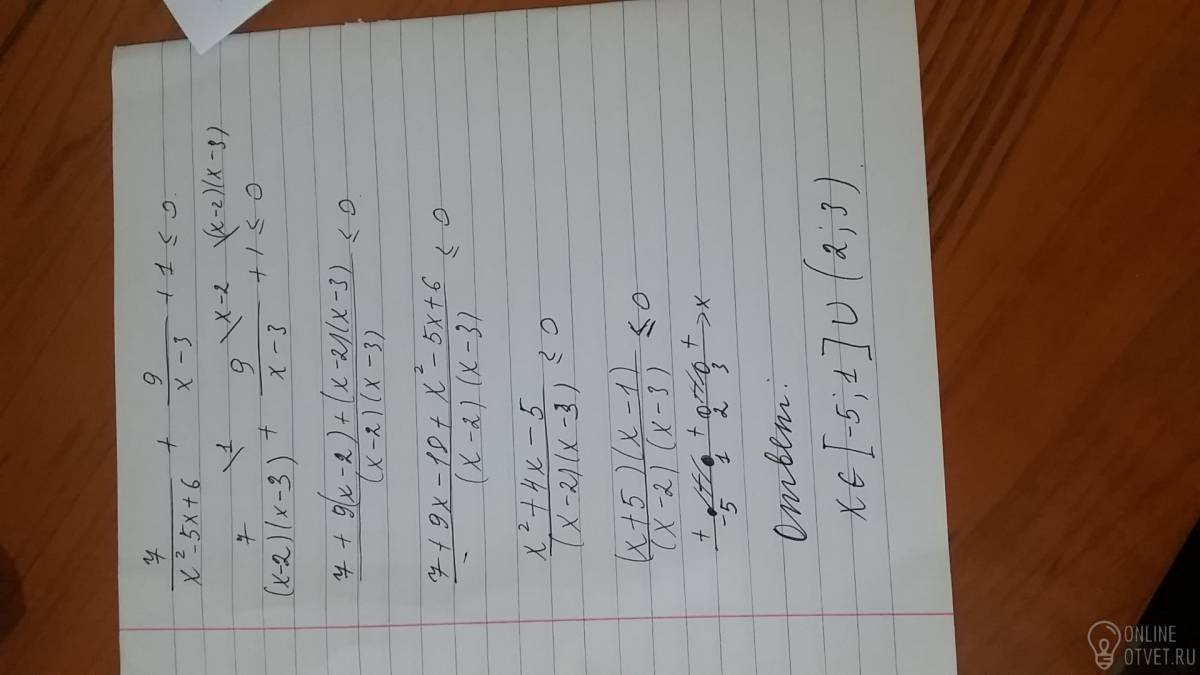 7/(x²-5x+6) + 9/(x-3) + 1 ≤ 0.
7\1/((x-2)(x-3)) + 9\x-2/(x-3) + 1\(x-2)(x-3) ≤ 0
(7+9(x-2)+(x-2)(x-3))/((x-2)(x-3)) ≤ 0.
(7+9x-18+x²-5x+6)/((x-2)(x-3)) ≤ 0
(x²+4x-5)/((x-2)(x-3)) ≤ 0
((x+5)(x-1))/((x-2)(x-3)) ≤ 0
+ - + - + → x
-5 1 2 3
Ответ:
x ∈ [-5; 1] ∪ (2; 3).
ONLINE
OTVET.RU